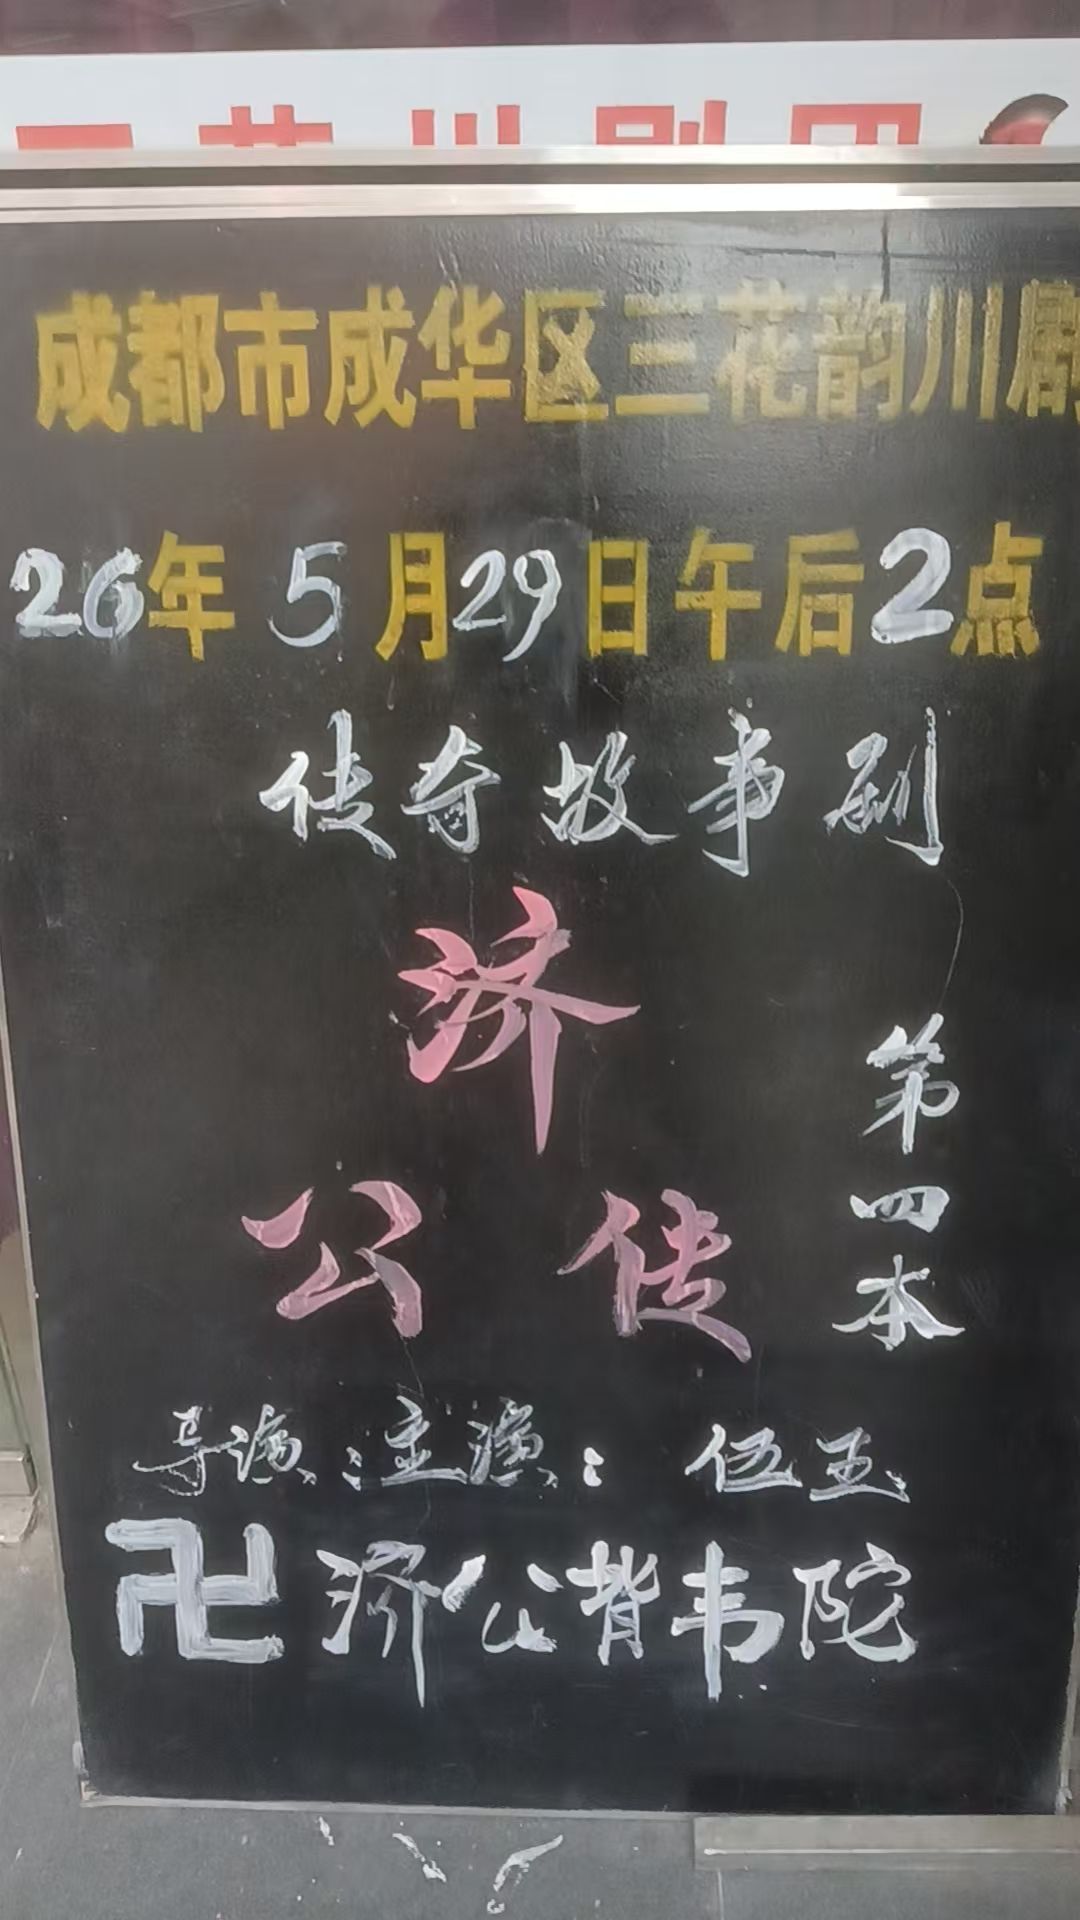 成都市成华区三花韵川剧
26年5月29日午后2点
传奇故事剧
济
公传
第四本
导演:主演:伍玉
卍济公背韦陀